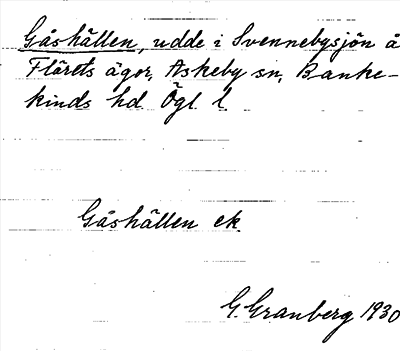 Gåshällen, udde i Svennebysjön å
Flärets ägor, Askeby sn, Banke-
kinds hd. Ögl. l
Gåshällen ek
G. Granberg 1930